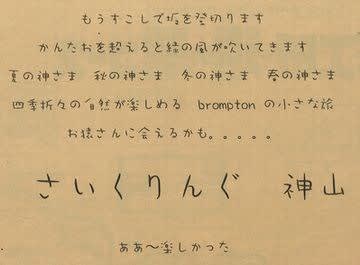 もうすこしで坂を登切ります
かんたおを超えると緑の風が吹いてきます
夏の神さま 秋の神さま 冬の神さま 春の神さま
四季折々の自然が楽しめる brompton の小さな旅
お猿さんに会えるかも。。。。。
さいくりんぐ 神山
ああ~楽しかった